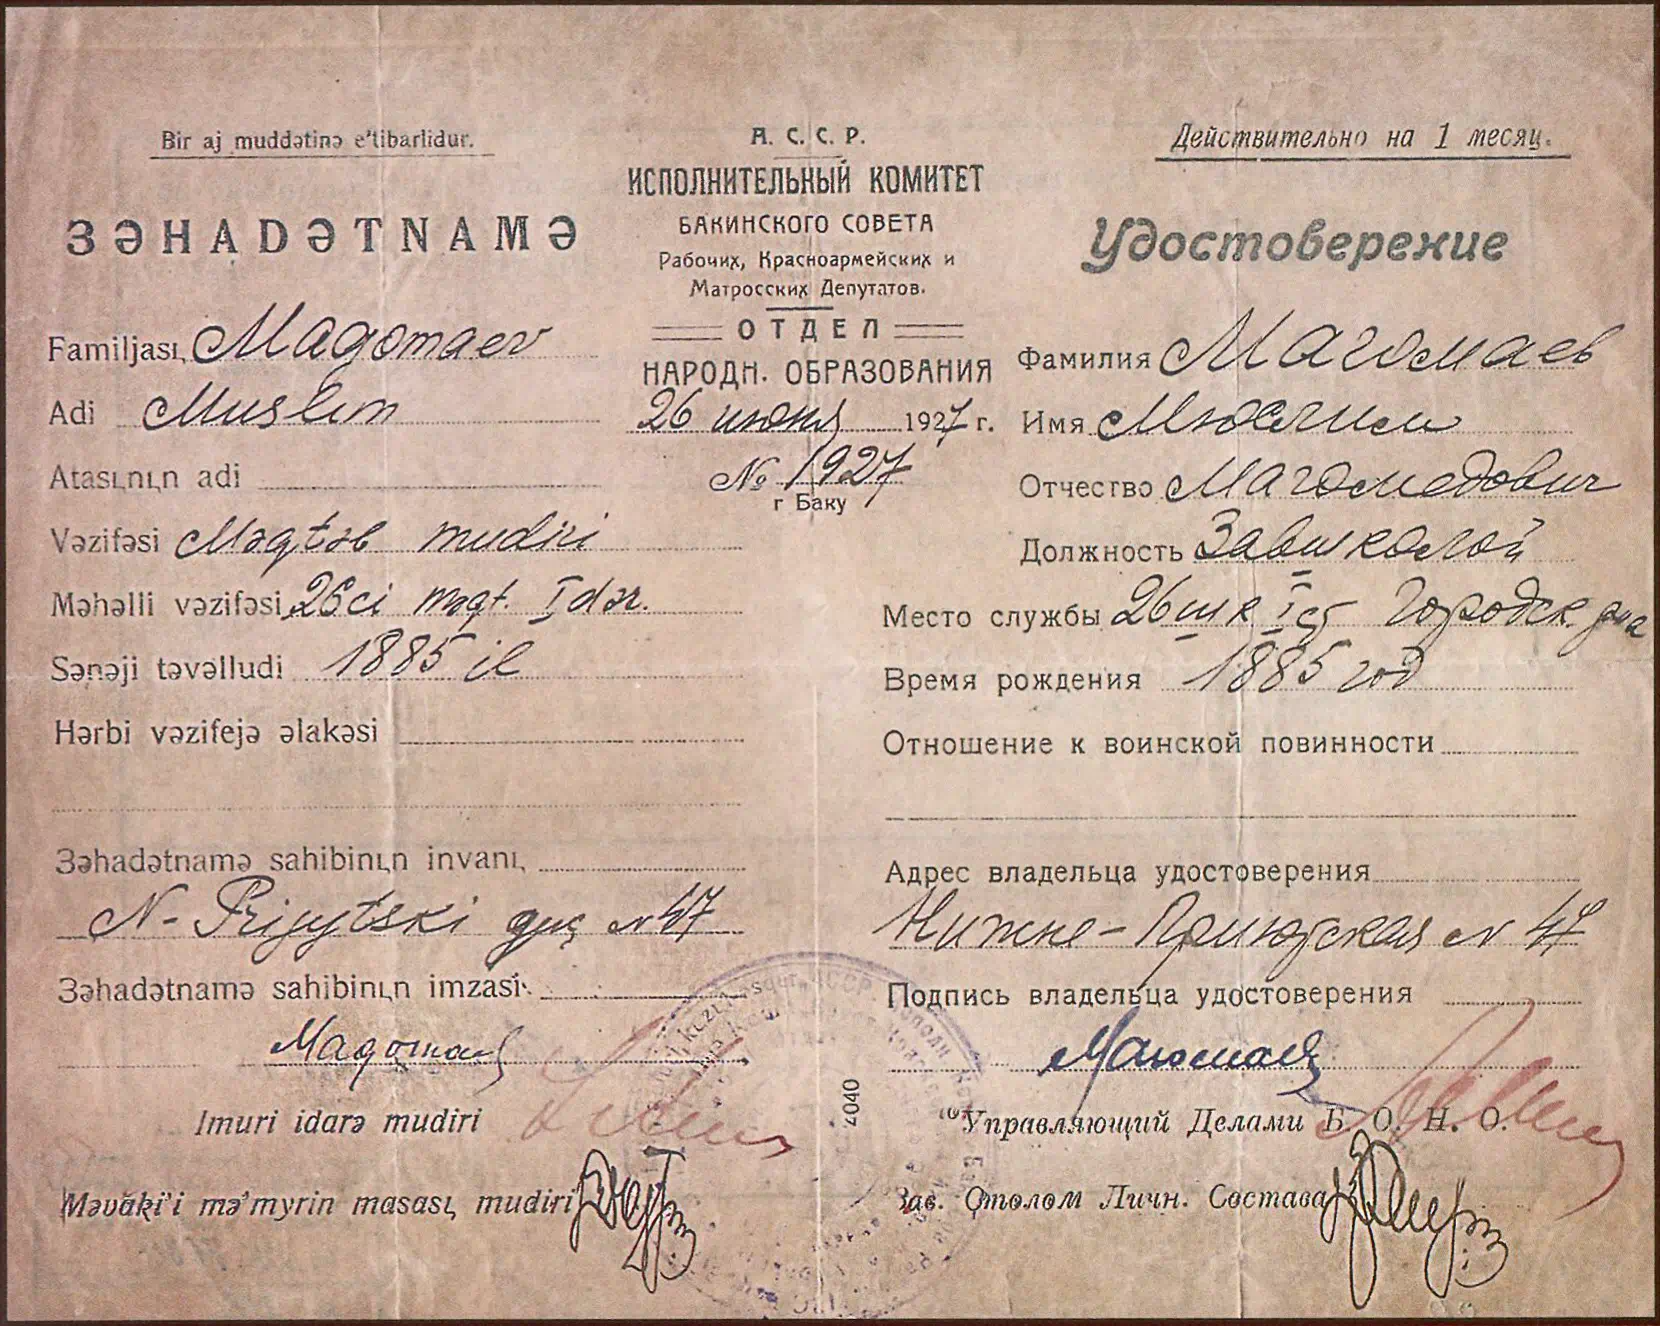 Bir aj muddətinə e'tibarlidur.
ЗƏHADƏTNAMƏ
Familjasь, Magomaev
Adi Muslim
Atasьnьn adi
Vəzifəsi Məqtəb mudiri
Məhəlli vəzifəsi 26ci məqt. I dər.
Sənəji təvəlludi 1885 il
Hərbi vəzifejə əlakəsi
Зəhadətnamə sahibinьn invanь,
N-Prijutski 47
Зəhadətnamə sahibinьn imzasi
Magomaev
Imuri idarə mudiri
Məvaki'i mə'myrin masasь mudiri
А. С. С. Р.
ИСПОЛНИТЕЛЬНЫЙ КОМИТЕТ
БАКИНСКОГО СОВЕТА
Рабочих, Красноармейских и
Матросских Депутатов.
ОТДЕЛ
НАРОДН. ОБРАЗОВАНИЯ
26 июня 1927 г.
№ 1927
г Баку
4040
Действительно на 1 месяц.
Удостоверение
Фамилия Магомаев
Имя Мюслим
Отчество Магомедович
Должность Завшколой
Место службы 26 шк I ст Городск. р-на
Время рождения 1885 год
Отношение к воинской повинности
Адрес владельца удостоверения
Нижне-Приютская N 47
Подпись владельца удостоверения
Магомаев
Управляющий Делами Б. О. Н. О.
Зав. Столом Личн. Состава